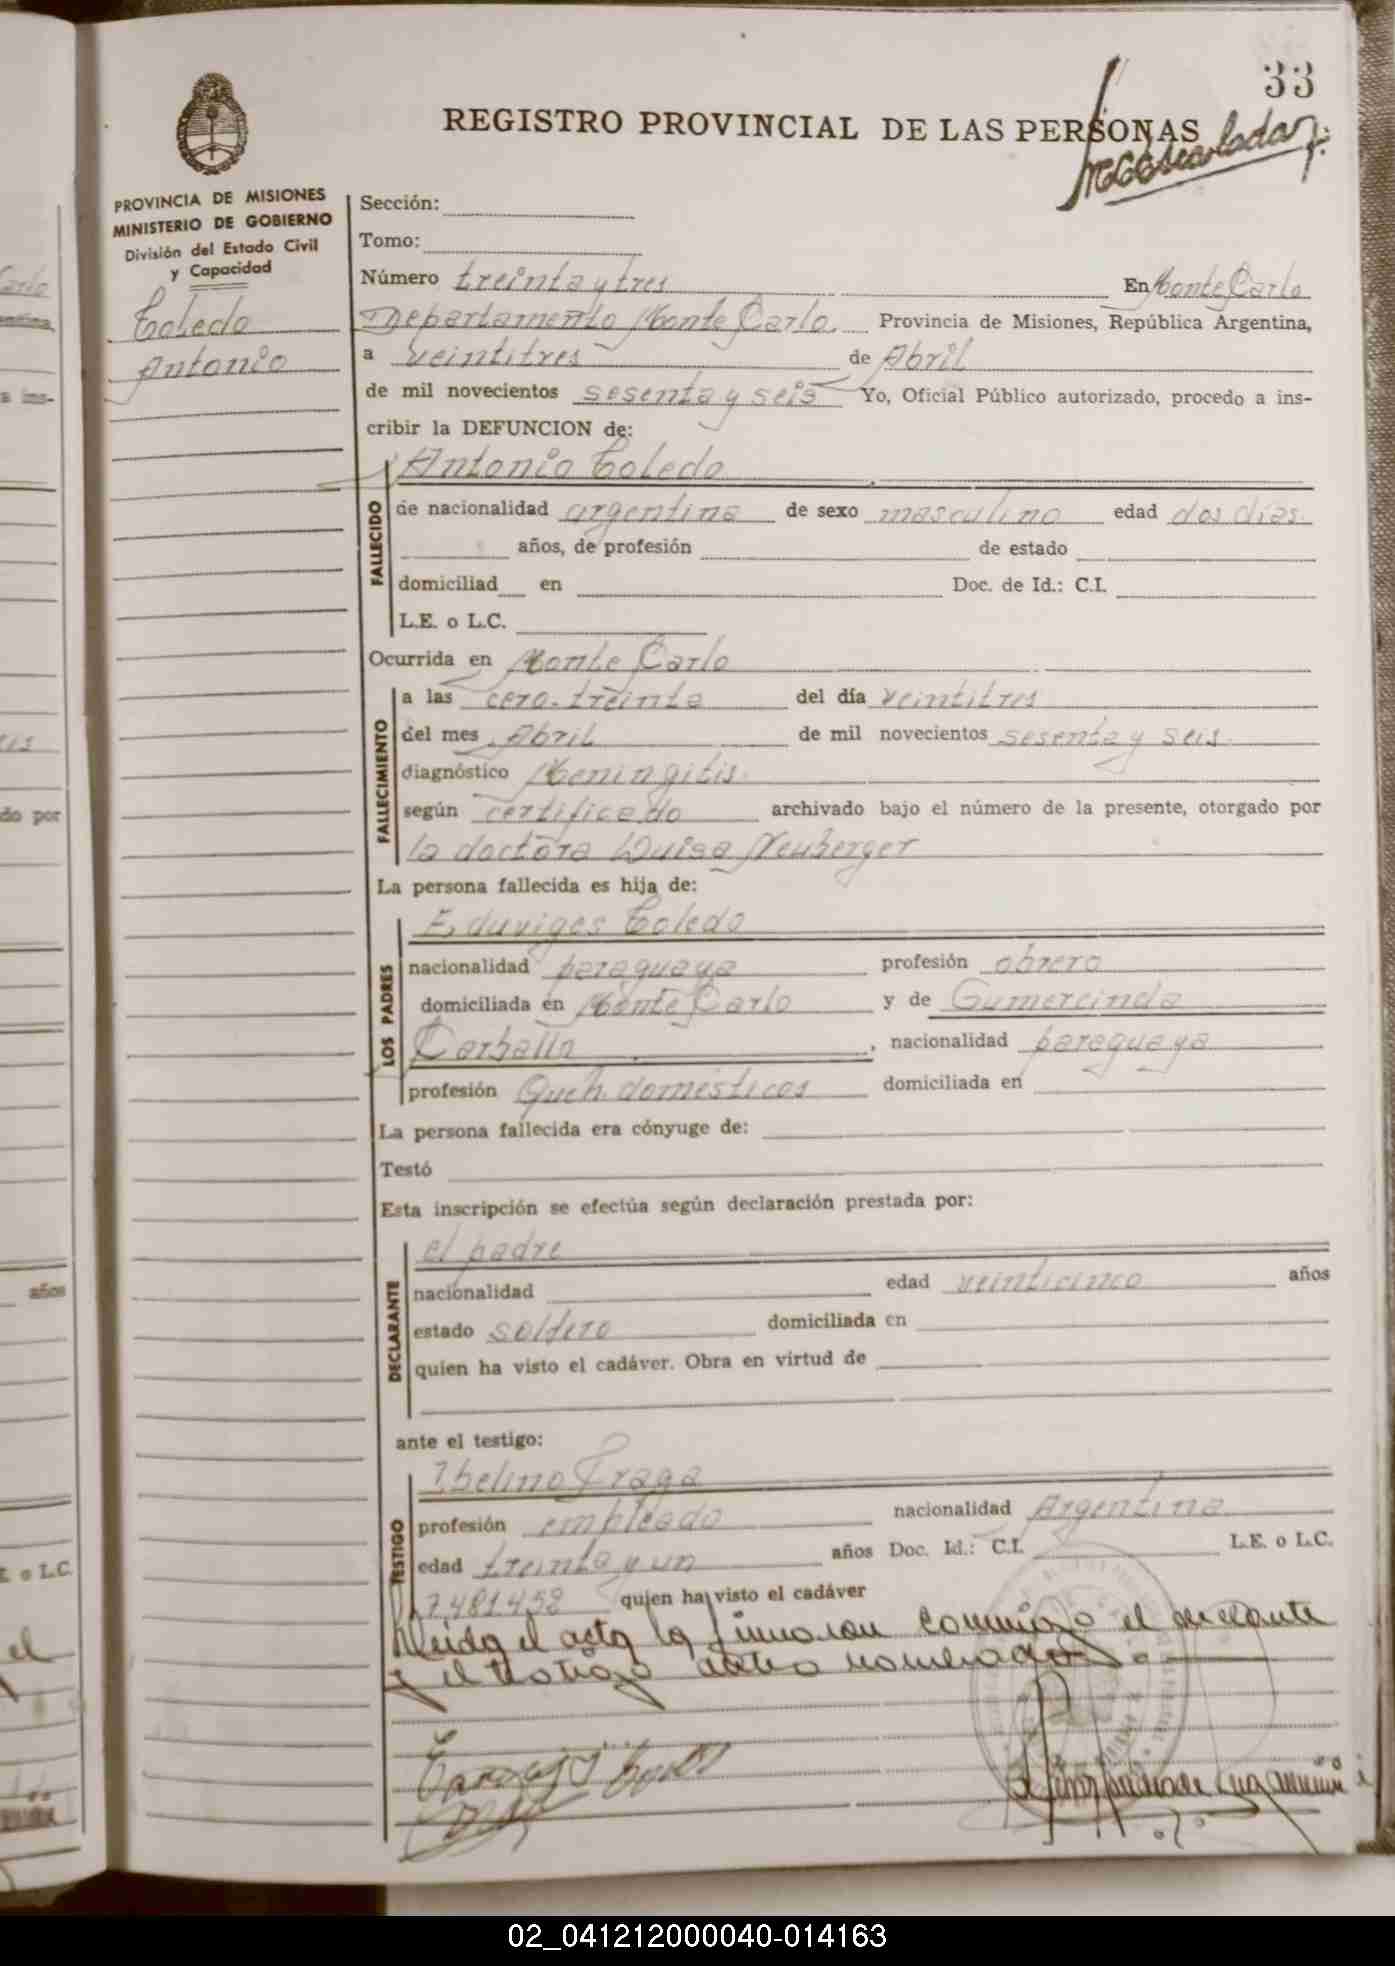 33
REGISTRO PROVINCIAL DE LAS PERSONAS
PROVINCIA DE MISIONES
MINISTERIO DE GOBIERNO
División del Estado Civil
y Capacidad
Toledo
Antonio
Sección:
Tomo:
Número treinta y tres En Monte Carlo
Departamento Monte Carlo. Provincia de Misiones, República Argentina,
a veintitres de Abril
de mil novecientos sesenta y seis Yo, Oficial Público autorizado, procedo a ins-
cribir la DEFUNCION de:
Antonio Toledo
FALLECIDO
de nacionalidad argentina de sexo masculino edad dos dias.
años, de profesión de estado
domiciliad en Doc. de Id.: C.I.
L.E. o L.C.
Ocurrida en Monte Carlo
FALLECIMIENTO
a las cero. treinta del día veintitres
del mes Abril de mil novecientos sesenta y seis.
diagnóstico Meningitis.
según certificado archivado bajo el número de la presente, otorgado por
la doctora Luisa Neuberger
La persona fallecida es hija de:
LOS PADRES
Eduviges Toledo
nacionalidad paraguaya profesión obrero
domiciliada en Monte Carlo y de Gumercinda
nacionalidad paraguaya
profesión Queh. domésticos domiciliada en
La persona fallecida era cónyuge de:
Testó
Esta inscripción se efectúa según declaración prestada por:
DECLARANTE
el padre
nacionalidad edad veinticinco años
estado soltero domiciliada en
quien ha visto el cadáver. Obra en virtud de
ante el testigo:
TESTIGO
Fraga
profesión empleado nacionalidad Argentina
edad treinta y un años Doc. Id.: C.I. L.E. o L.C.
7.481.458 quien ha visto el cadáver
Leida el acta la firmaron conmigo el declarante
y el testigo antes nombrados.
años
do por
02_041212000040-014163